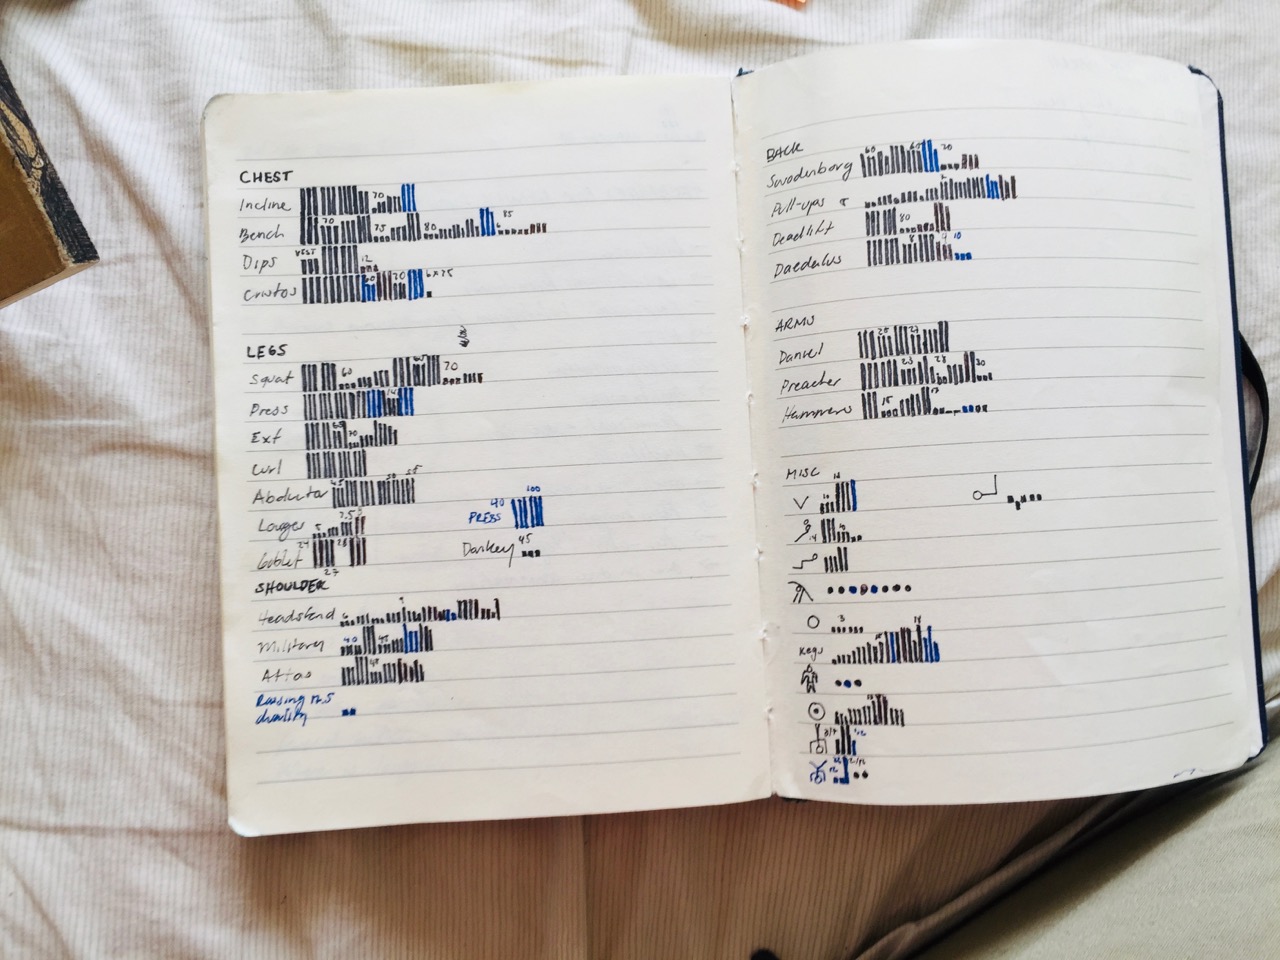 CHEST
Incline 70
Bench 70 75 80 85
Dips VEST 12
Cristos 60 70 6x75
LEGS
Squat 60 70
Press
Ext 65 70
Curl
Abductor 45 50 55
Lounges 5 7,5
Goblet 24 28
27
40 100
PRESS
Donkey 45
SHOULDER
Headstand
Military 40 45
Atlas
Raising 12.5
BACK
Swodenborg 60 70
Pull-ups
Deadlift 80
Daedalus 8 9 10
ARMS
Daniel 25 27
Preacher 25 28 30
Hammers 15 17
MISC
3
Kegs